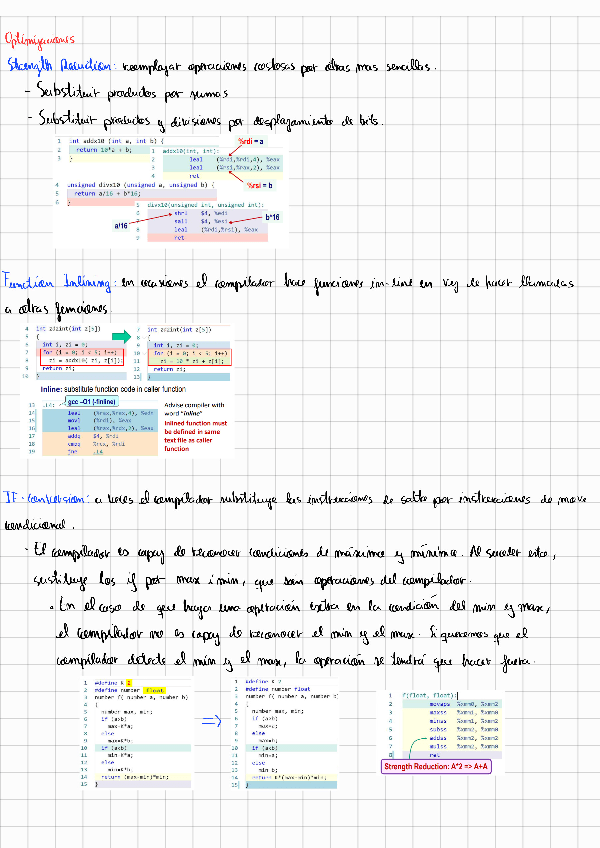 Optimizaciones
Strength Reduction: reemplazar operaciones costosas por otras mas sencillas.
- Substituir productos por sumas
- Substituir productos y divisiones por desplazamiento de bits.
1 int addx10 (int a, int b) {
2 return 10*a + b;
3 }
1 addx10(int, int):
2 leal (%rdi,%rdi,4), %eax
3 leal (%rsi,%rax,2), %eax
4 ret
%rdi = a
%rsi = b
4 unsigned divx10 (unsigned a, unsigned b) {
5 return a/16 + b*16;
6 }
5 divx10(unsigned int, unsigned int):
6 shrl $4, %edi
7 sall $4, %esi
8 leal (%rdi,%rsi), %eax
9 ret
a/16
b*16
Function Inlining: en ocasiones el compilador hace funciones in-line en vez de hacer llamadas
a otras funciones
4 int zdzint(int z[5])
5 {
6 int i, zi = 0;
7 for (i = 0; i < 5; i++)
8 zi = addx10( zi, z[i]);
9 return zi;
10 }
7 int zdzint(int z[5])
8 {
9 int i, zi = 0;
10 for (i = 0; i < 5; i++)
11 zi = 10 * zi + z[i];
12 return zi;
13 }
Inline: substitute function code in caller function
gcc -O1 (-finline)
13 .L4:
14 leal (%rax,%rax,4), %edx
15 movl (%rdi), %eax
16 leal (%rax,%rdx,2), %eax
17 addq $4, %rdi
18 cmpq %rcx, %rdi
19 jne .L4
Advise compiler with
word "inline"
Inlined function must
be defined in same
text file as caller
function
IF-conversion: a veces el compilador substituye las instrucciones de salto por instrucciones de move
condicional.
• El compilador es capaz de reconocer condiciones de máximo y mínimo. Al suceder esto,
sustituye los if por max i min, que son operaciones del compilador.
• En el caso de que haya una operación extra en la condición del min y max,
el compilador no es capaz de reconocer el min y el max. Si queremos que el
compilador detecte el min y el max, la operación se tendrá que hacer fuera.
1 #define K 2
2 #define number float
3 number f( number a, number b)
4 {
5 number max, min;
6 if (a>b)
7 max=K*a;
8 else
9 max=K*b;
10 if (a<b)
11 min=K*a;
12 else
13 min=K*b;
14 return (max-min)*min;
15 }
1 #define K 2
2 #define number float
3 number f( number a, number b)
4 {
5 number max, min;
6 if (a>b)
7 max=a;
8 else
9 max=b;
10 if (a<b)
11 min=a;
12 else
13 min=b;
14 return K*(max-min)*min;
15 }
1 f(float, float):
2 movaps %xmm0, %xmm2
3 maxss %xmm1, %xmm2
4 minss %xmm1, %xmm0
5 subss %xmm0, %xmm2
6 addss %xmm2, %xmm2
7 mulss %xmm2, %xmm0
8 ret
Strength Reduction: A*2 => A+A